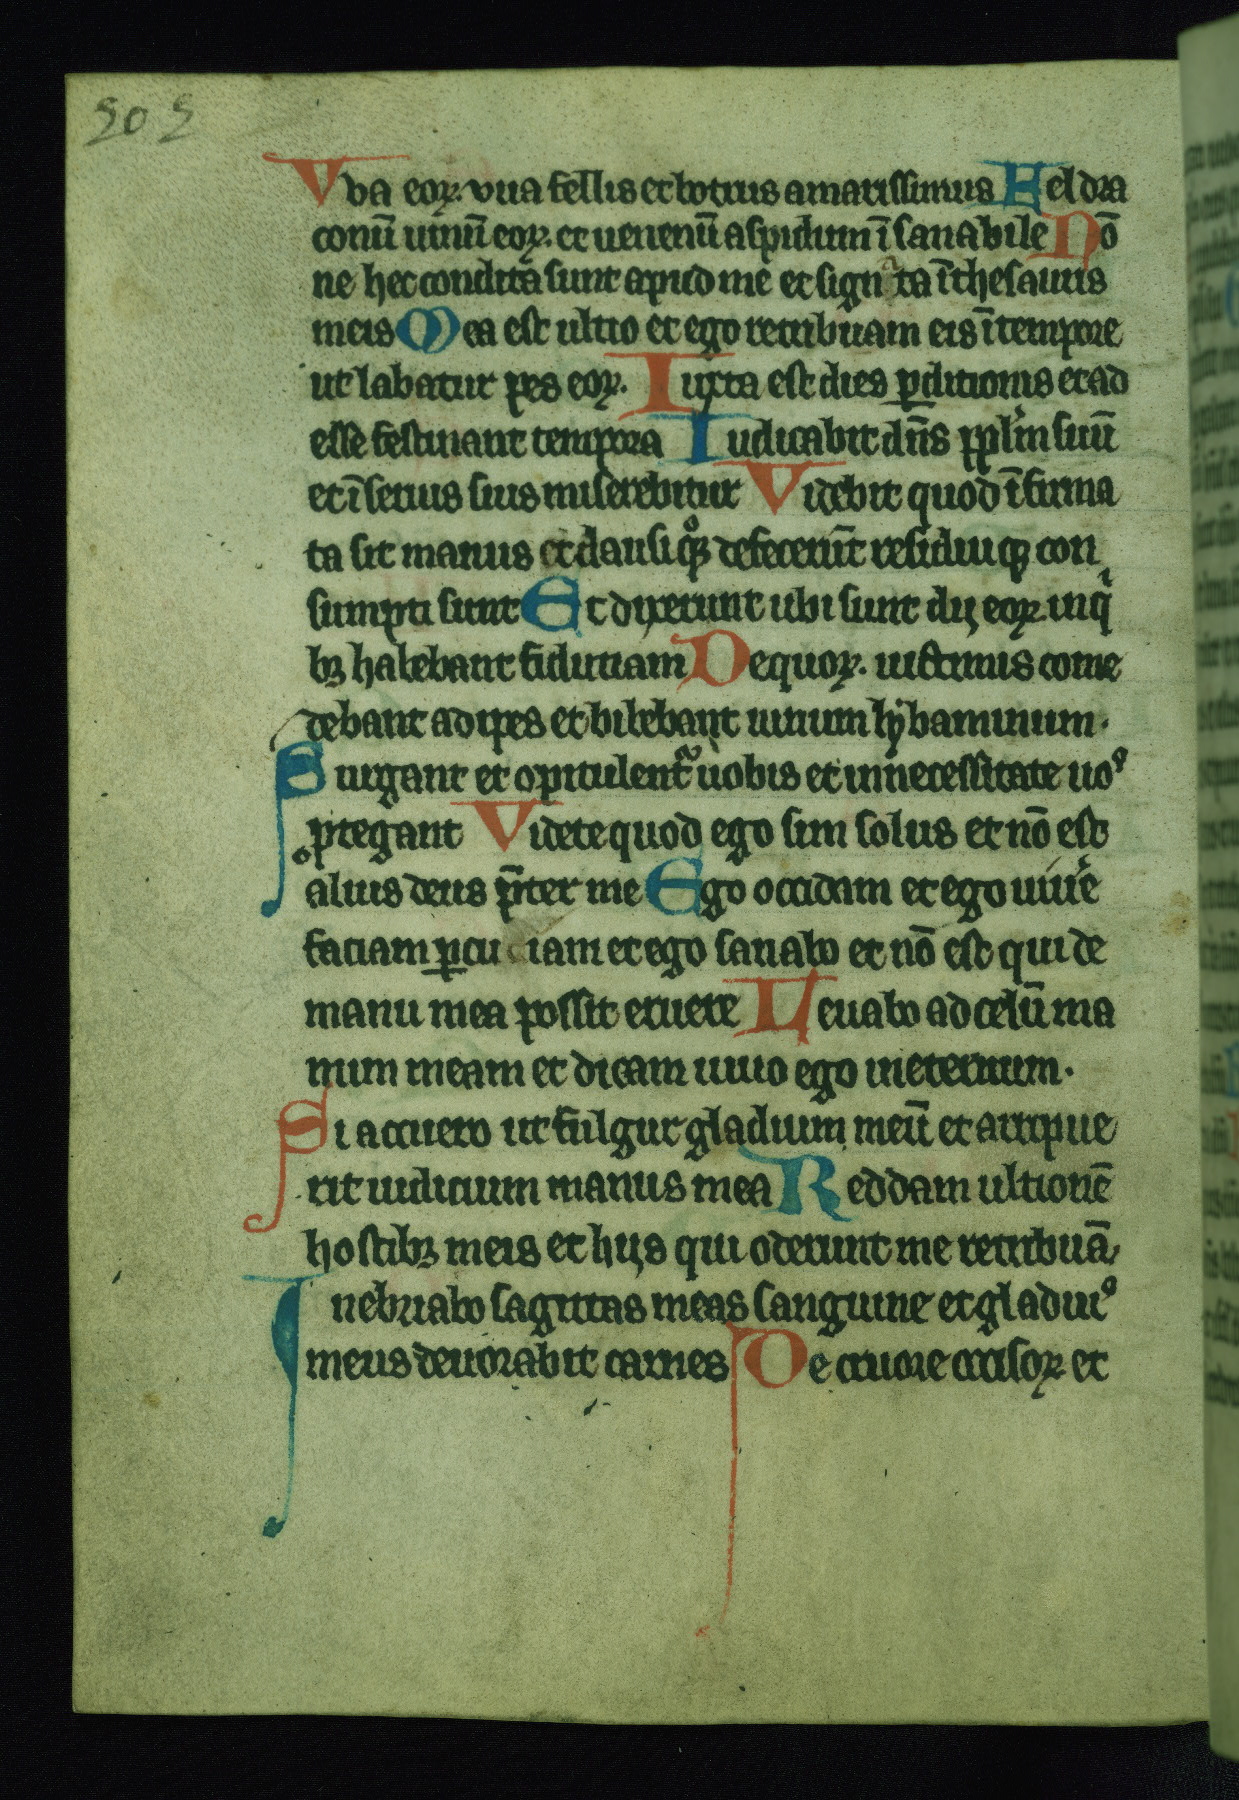 202
Vva eoꝝ. vua fellis et botrus amarissimus Fel dra
conū uinū eoꝝ. et uenenū aspidum īsanabile Nō
ne hec condita sunt apud me et signata ī thesauris
meis Mea est ultio et ego retribuam eis ī tempore
ut labatur pes eoꝝ. Iuxta est dies ꝑditionis et ad
esse festinant tempora Iudicabit dn̄s pplm suū
et ī seruis suis miserebitur Videbit quod īfirma
ta sit manus et clausi qͦꝫ defecerūt residui qꝫ con
sumpti sunt Et dixerunt ubi sunt dij eoꝝ. in qͥ
bꝫ habebant fiduciam De quoꝝ. uictimis come
debant adipes et bibebant uinum lybaminum.
Surgant et opitulent᷑ uobis et in necessitate uoꝰ
ꝓtegant Videte quod ego sim solus et nō est
alius deus p̄ter me Ego occidam et ego uiuͤe
faciam ꝑcuciam et ego sanabo et nō est qui de
manu mea possit eruere Leuabo ad celū ma
num meam et dicam uiuo ego in eternum.
Si accuero ut fulgur gladium meū et arripue
rit iudicium manus mea Reddam ultionē
hostibꝫ meis et hijs qui oderunt me retribuā
Inebriabo sagittas meas sanguine et gladiuꝰ
meus deuorabit carnes De cruore occisoꝝ et